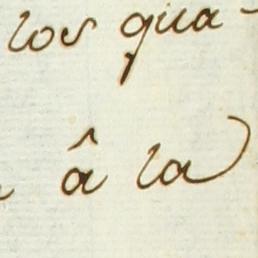 los qua-
â la